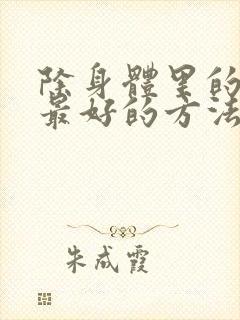 除身體里的
最好的方法
朱成霞